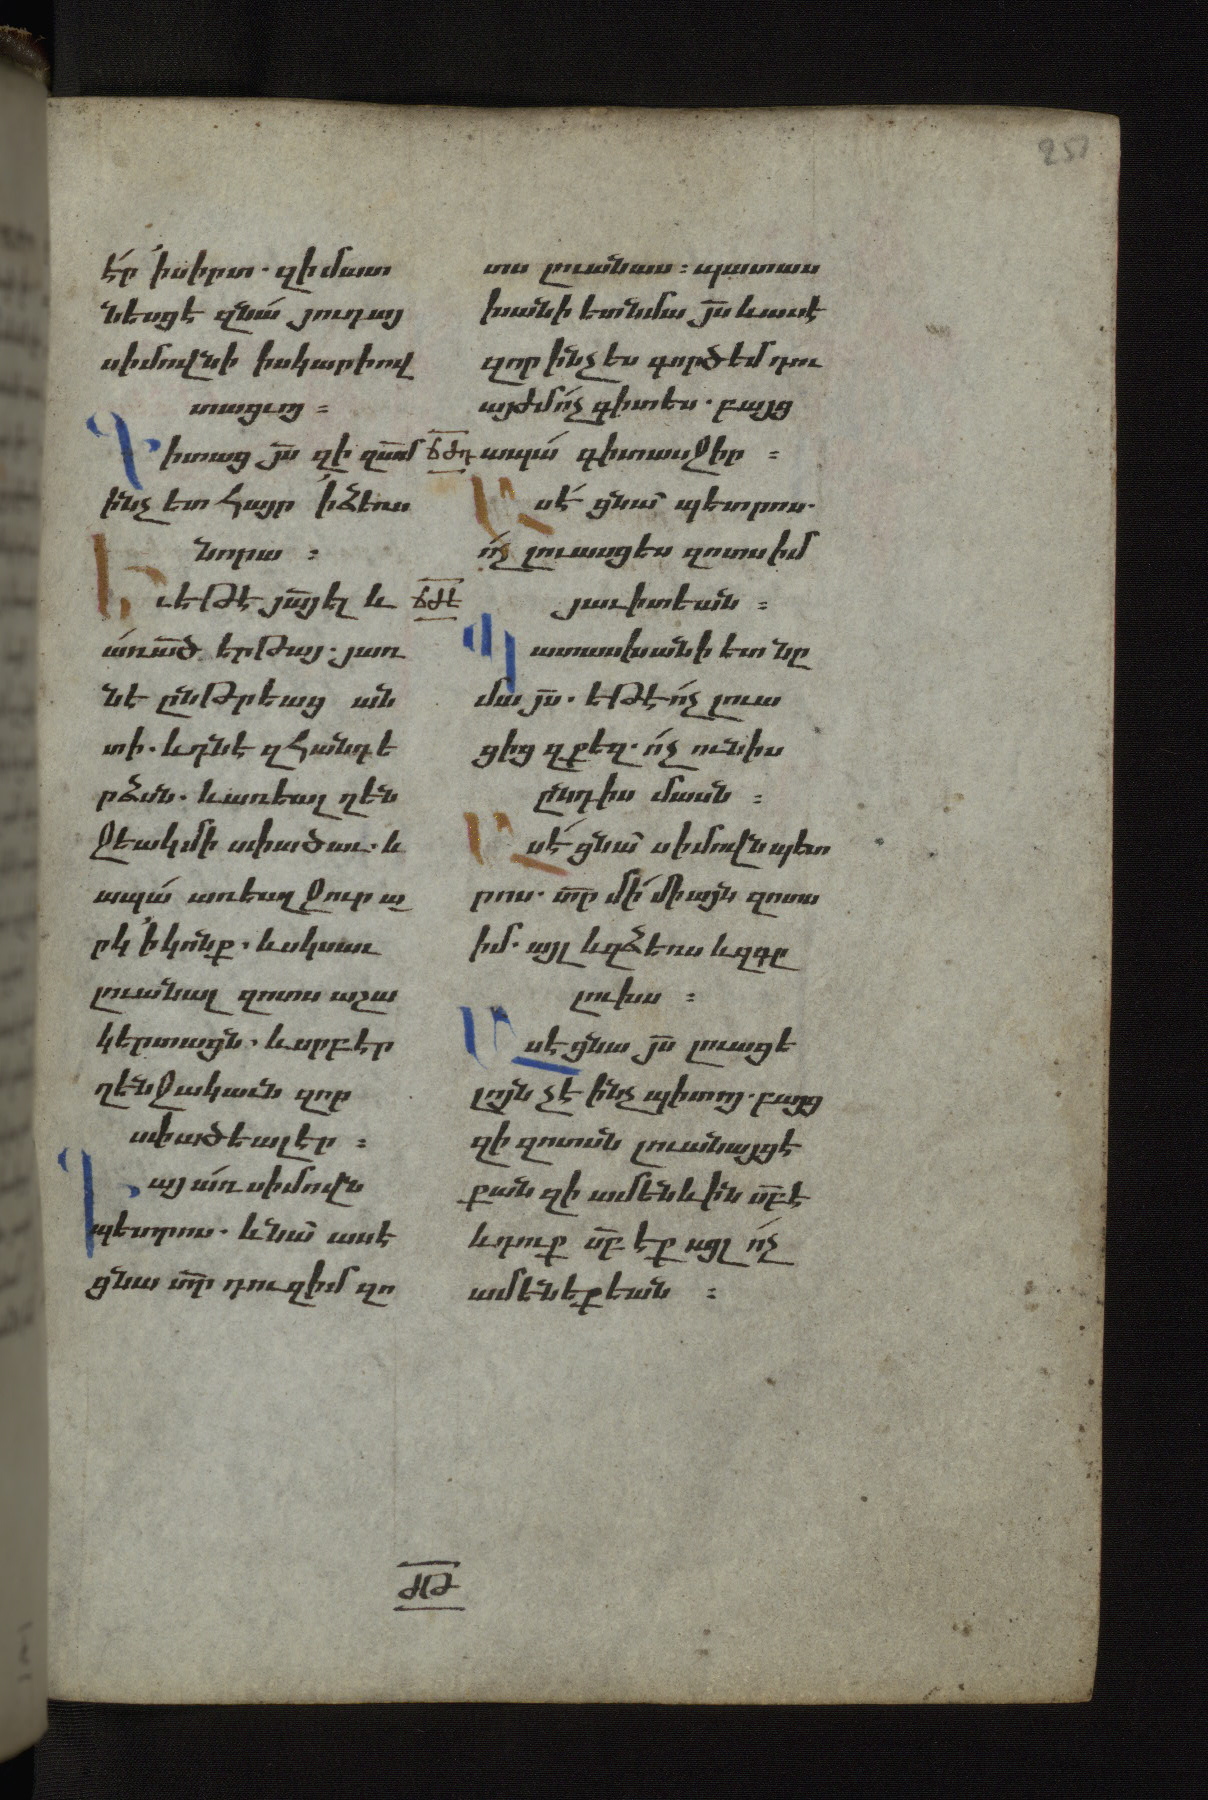 251
է՛ր ՚ի սիրտ. զի մատ
նեսցէ զնա՛ յուդայ
սիմովնի իսկարիով
տացւոյ ։
Գիտաց յ̅ս զի զա̅մ
ինչ ետ հայր ՚ի ձեռս
նորա ։
Եւ եթէ յա̅յ ել և
ա՛ռ ա̅ծ երթայ. յառ
նէ ընթրեաց ան
տի. և դնէ զհանդե
րձսն. և առեալ ղեն
ջեակ մի սփածաւ. և
ապա՛ առեալ ջուր ա
րկ ՚ի կոնք. և սկսաւ
լուանալ զոտս աշա
կերտացն. և սրբեր
ղենջակաւն զոր
սփածեալ էր ։
Գայ առ սիմովն
պետրոս. և նա՛ ասէ
ցնա տ̅ր դու զիմ զո
ճժդ
ճժե
տս լուանաս ։ պատաս
խանի ետ նմա յ̅ս և ասէ
զոր ինչ ես գործեմ դու
այժմ ո՛չ գիտես. բայց
ապա՛ գիտասջիր ։
Ասէ՛ ցնա՛ պետրոս.
ո՛չ լուասցես զոտս իմ
յաւիտեան ։
Պատասխանի ետ նը
մա յ̅ս. եթէ ո՛չ լուա
ցից զքեզ. ո՛չ ունիս
ընդիս մասն ։
Ասէ՛ ցնա՛ սիմովն պետ
րոս. տ̅ր մի՛ միայն զոտս
իմ. այլ և զձեռս և զգը
լուխս ։
Ասէ ցնա յ̅ս լուացե
լոյն չէ ինչ պիտոյ. բայց
զի զոտսն լուանայցէ
քան զի ամենևին ս̅բ է
և դուք ս̅բ էք այլ ո՛չ
ամենեքեան ։
ԺԹ